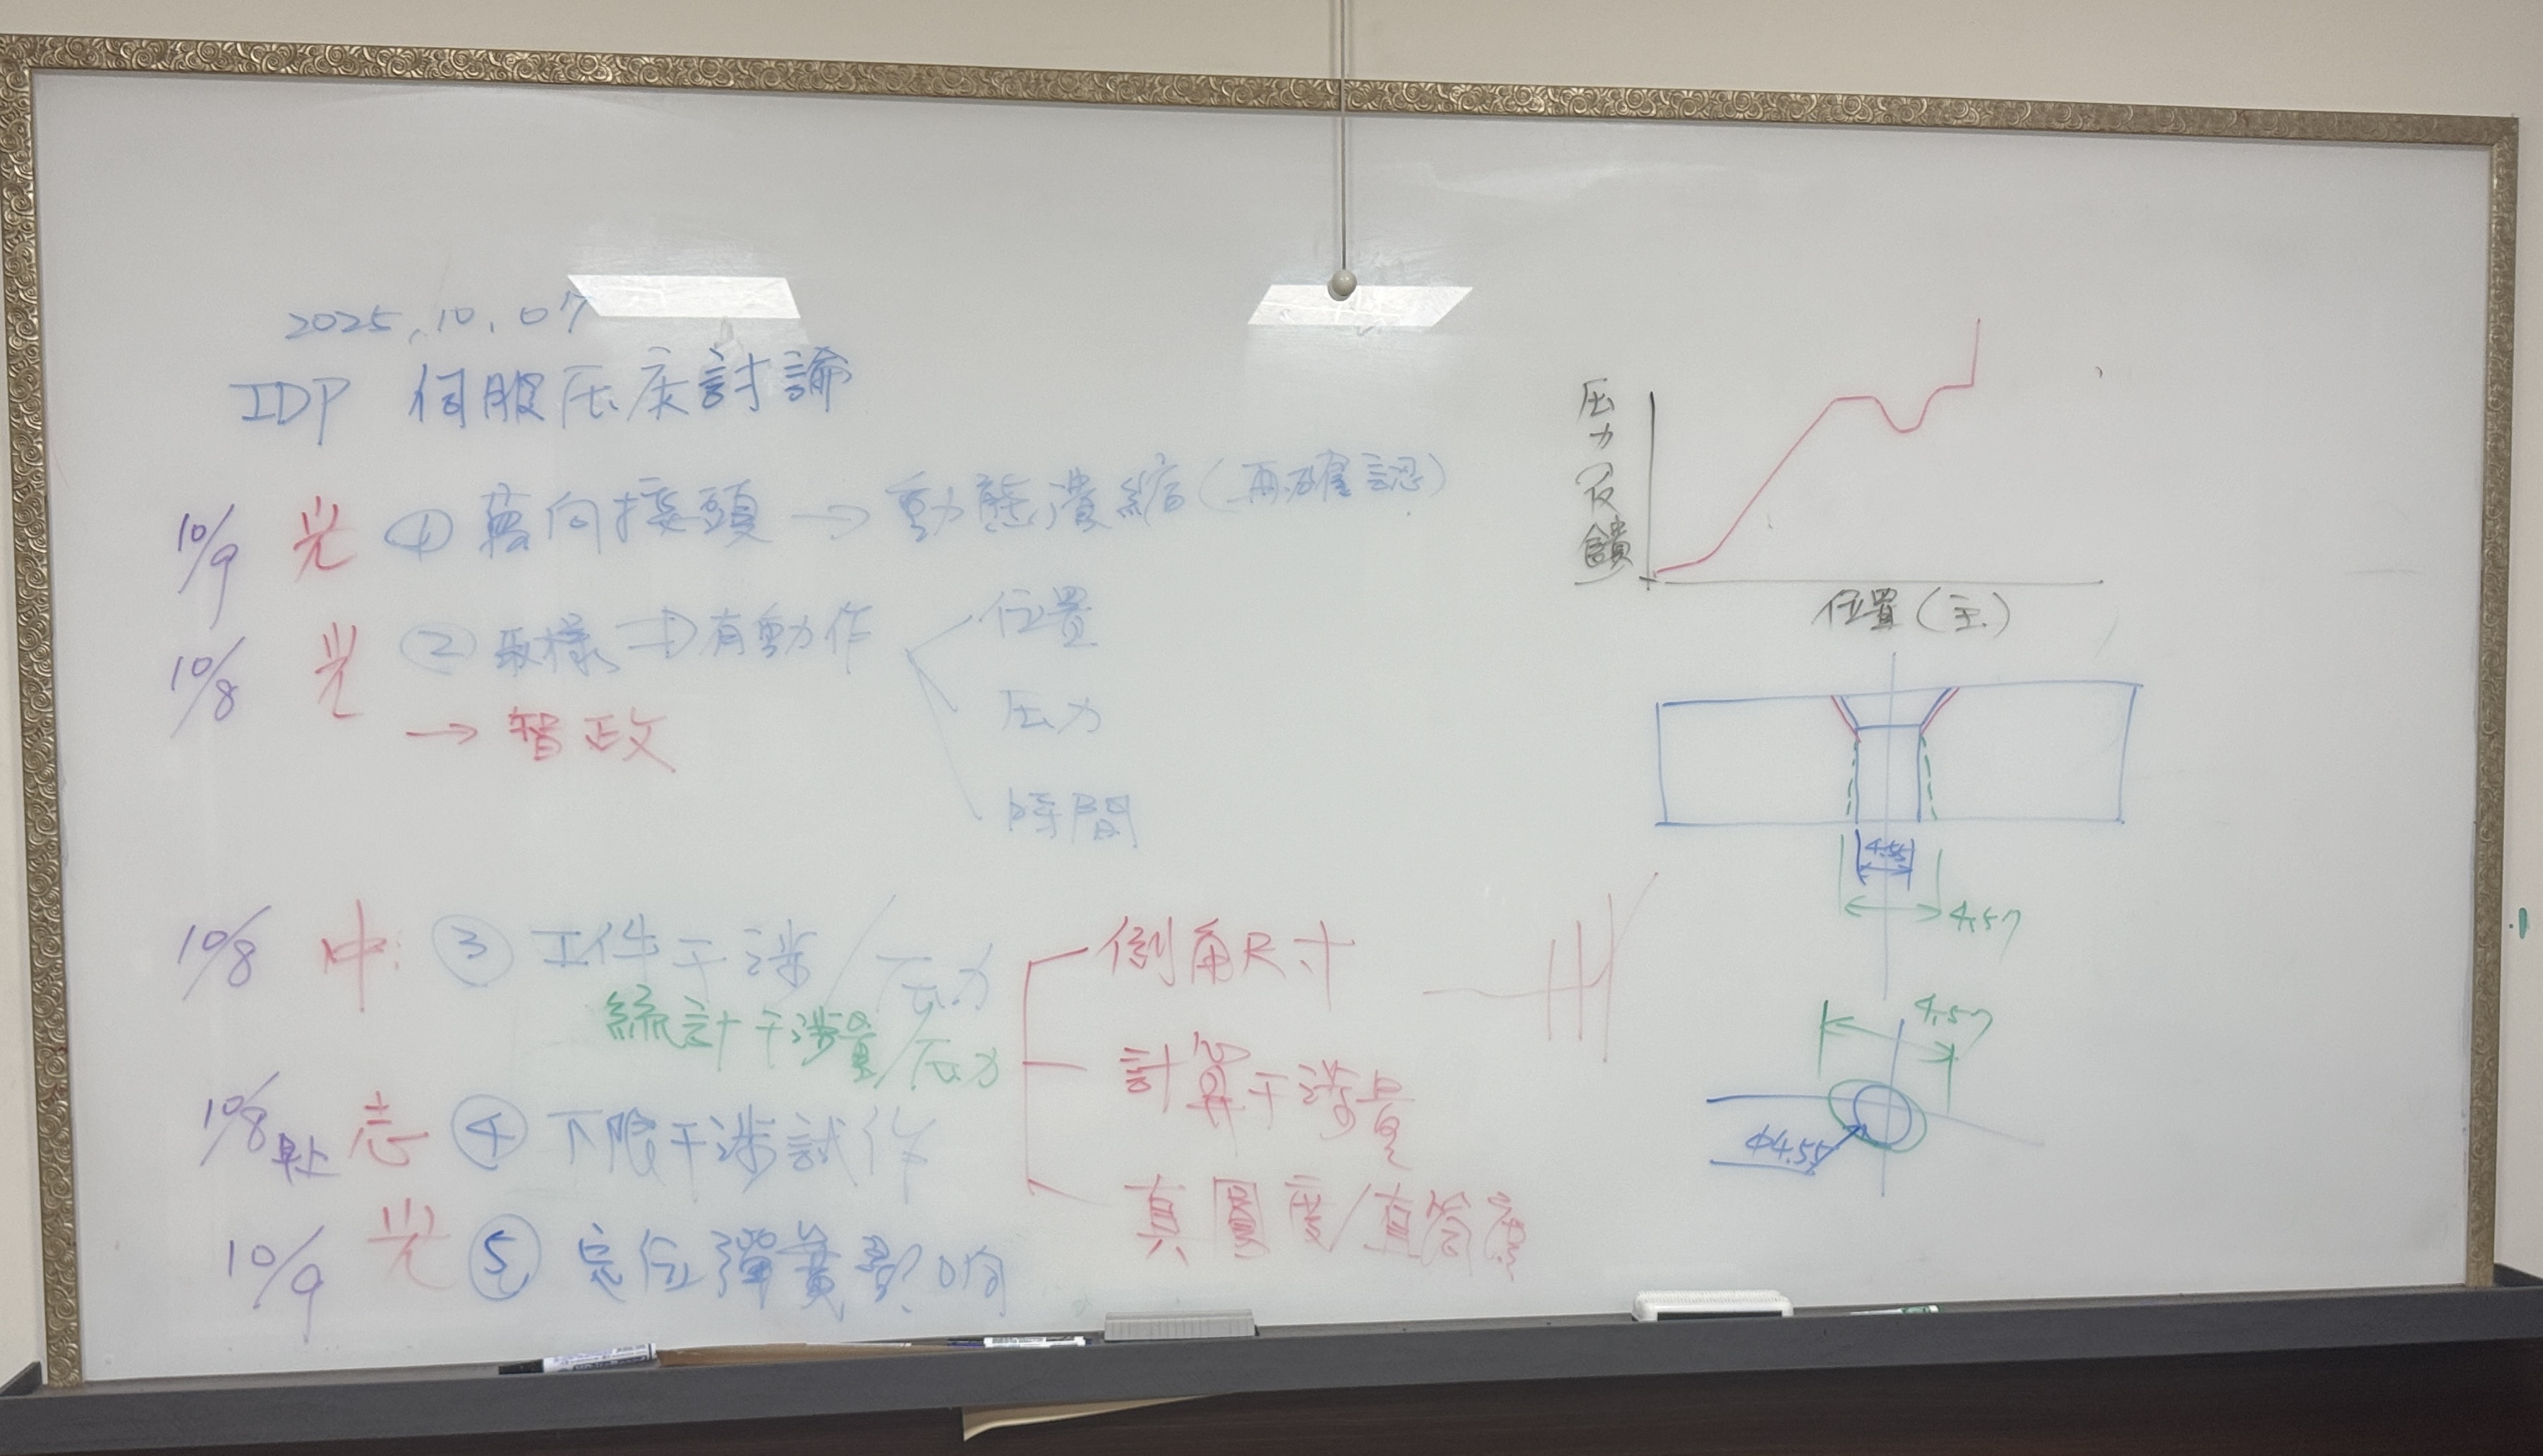 2025.10.07
IDP 伺服压床討論
10/9 光 ① 萬向接頭 → 動態潰縮(再確認)
10/8 光 ② 取樣 → 有動作
位置
压力
時間
→ 智政
10/8 中: ③ 工件干涉/压力
統計干涉量/压力
倒角尺寸
計算干涉量
真圓度/直筒度
10/8 早上 志 ④ 下限干涉試作
10/9 光 ⑤ 定位彈簧影响
压力反饋
位置(主)
4.55
4.57
4.57
Φ4.55